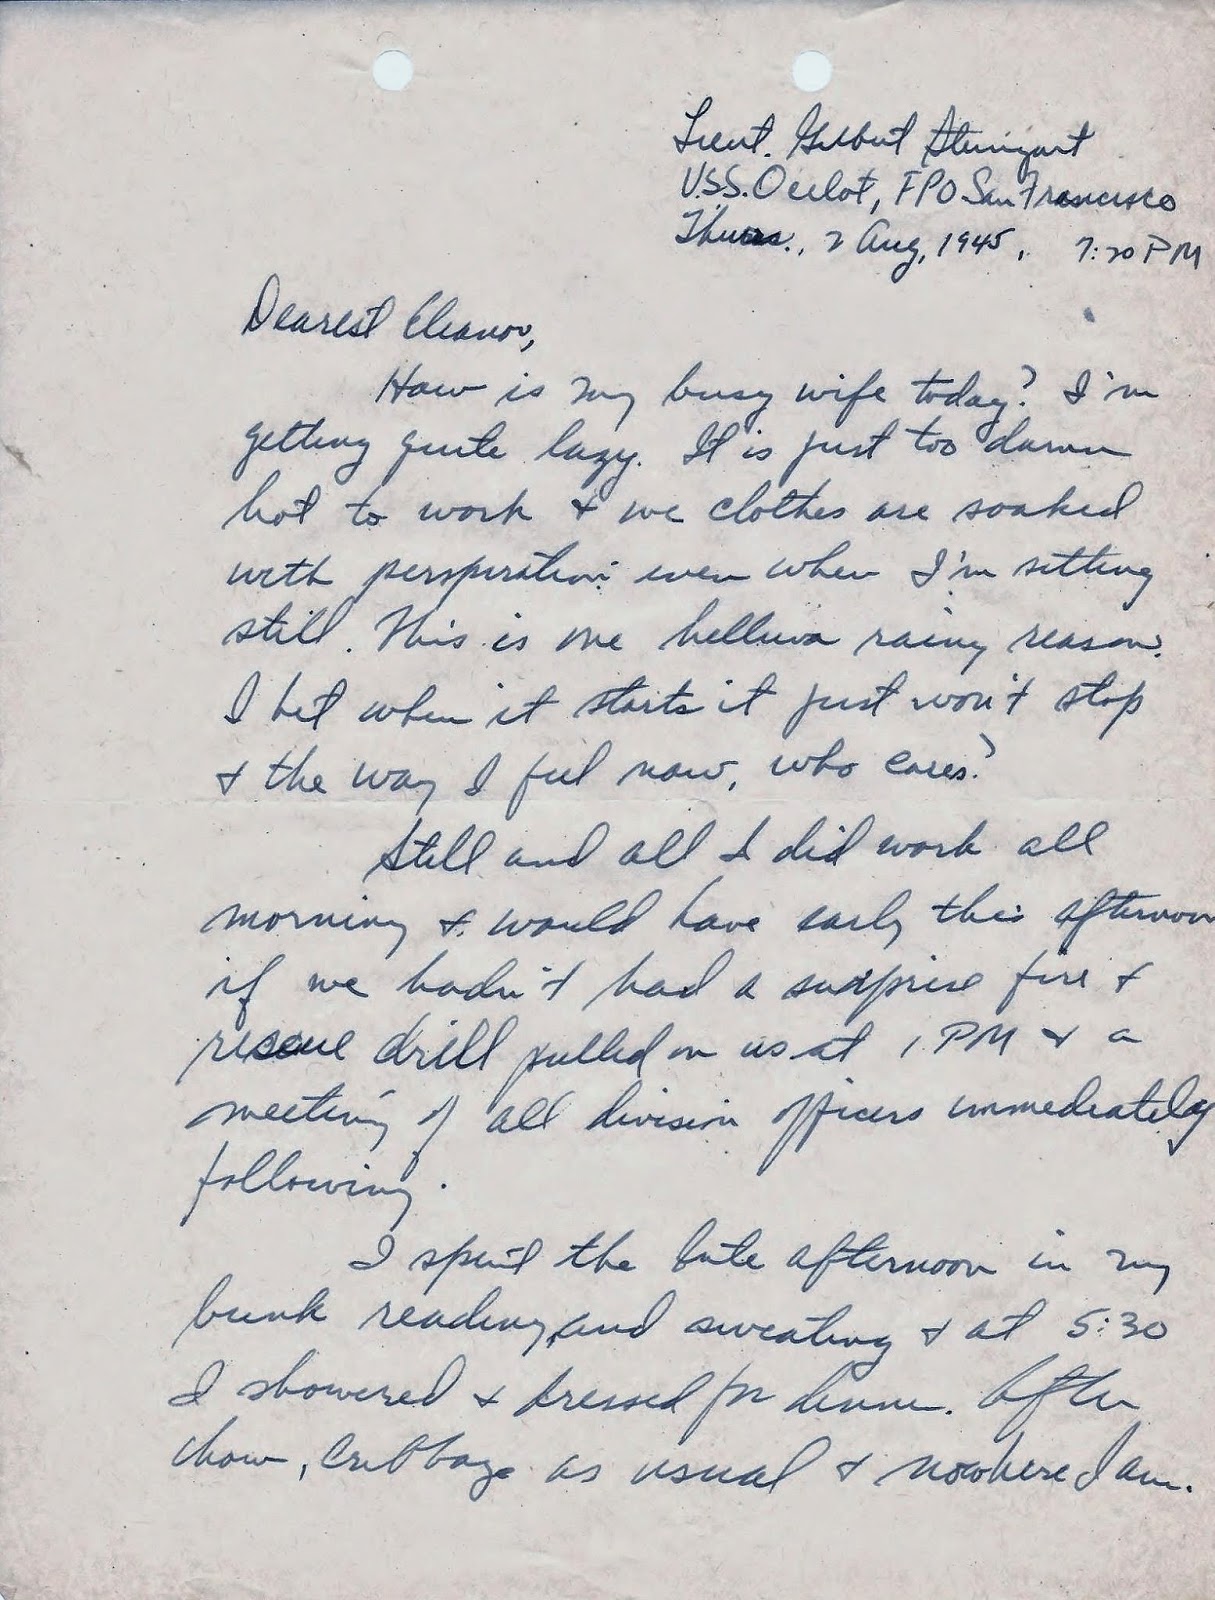 Lieut. Gilbert Steingart
U.S.S. Ocelot, FPO San Francisco
Thurs., 2 Aug, 1945, 7:20 PM
Dearest Eleanor,
How is my busy wife today? I'm
getting quite lazy. It is just too damn
hot to work & me clothes are soaked
with perspiration even when I'm sitting
still. This is one helluva rainy season.
I bet when it starts it just won't stop
& the way I feel now, who cares?
Still and all I did work all
morning & would have early this afternoon
if we hadn't had a surprise fire &
rescue drill pulled on us at 1 PM & a
meeting of all division officers immediately
following.
I spent the late afternoon in my
bunk reading, and sweating & at 5:30
I showered & dressed for dinner. After
chow, cribbage as usual & now here I am.